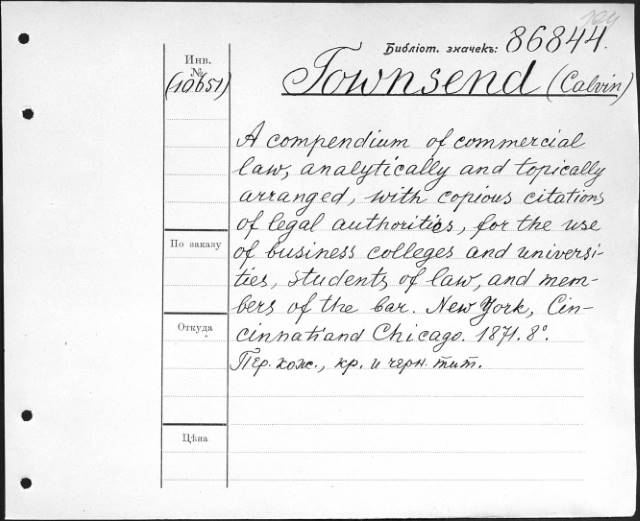 Библіот. значекъ: 86844.
Инв. №
(10651)
Townsend (Calvin)
A compendium of commercial
law, analytically and topically
arranged, with copious citations
of legal authorities, for the use
of business colleges and universi-
ties, students of law, and mem-
bers of the bar. New York, Cin-
cinnati and Chicago. 1871. 8°.
Пер. кож., кр. и черн. тит.
По заказу
Откуда
Цѣна